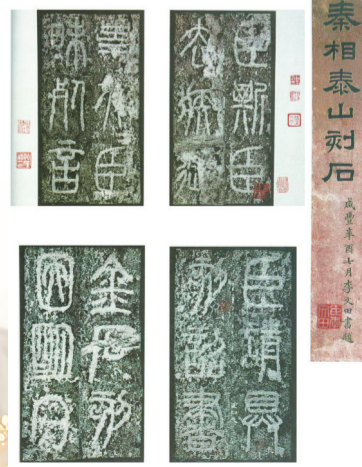 秦相泰山刻石
咸豐辛酉七月李文田書題
臣斯臣
去疾御
史夫臣
昧死言
臣請具
刻詔書
金石刻
因明白